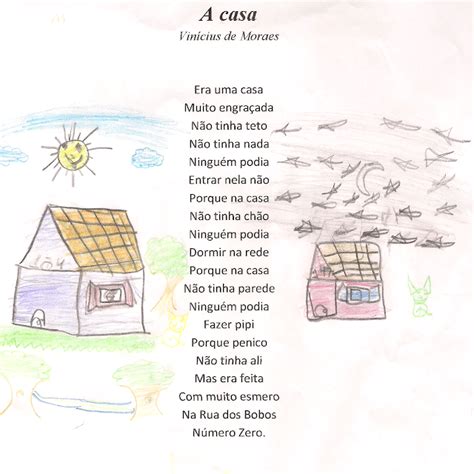 A casa
Vinícius de Moraes
Era uma casa
Muito engraçada
Não tinha teto
Não tinha nada
Ninguém podia
Entrar nela não
Porque na casa
Não tinha chão
Ninguém podia
Dormir na rede
Porque na casa
Não tinha parede
Ninguém podia
Fazer pipi
Porque penico
Não tinha ali
Mas era feita
Com muito esmero
Na Rua dos Bobos
Número Zero.